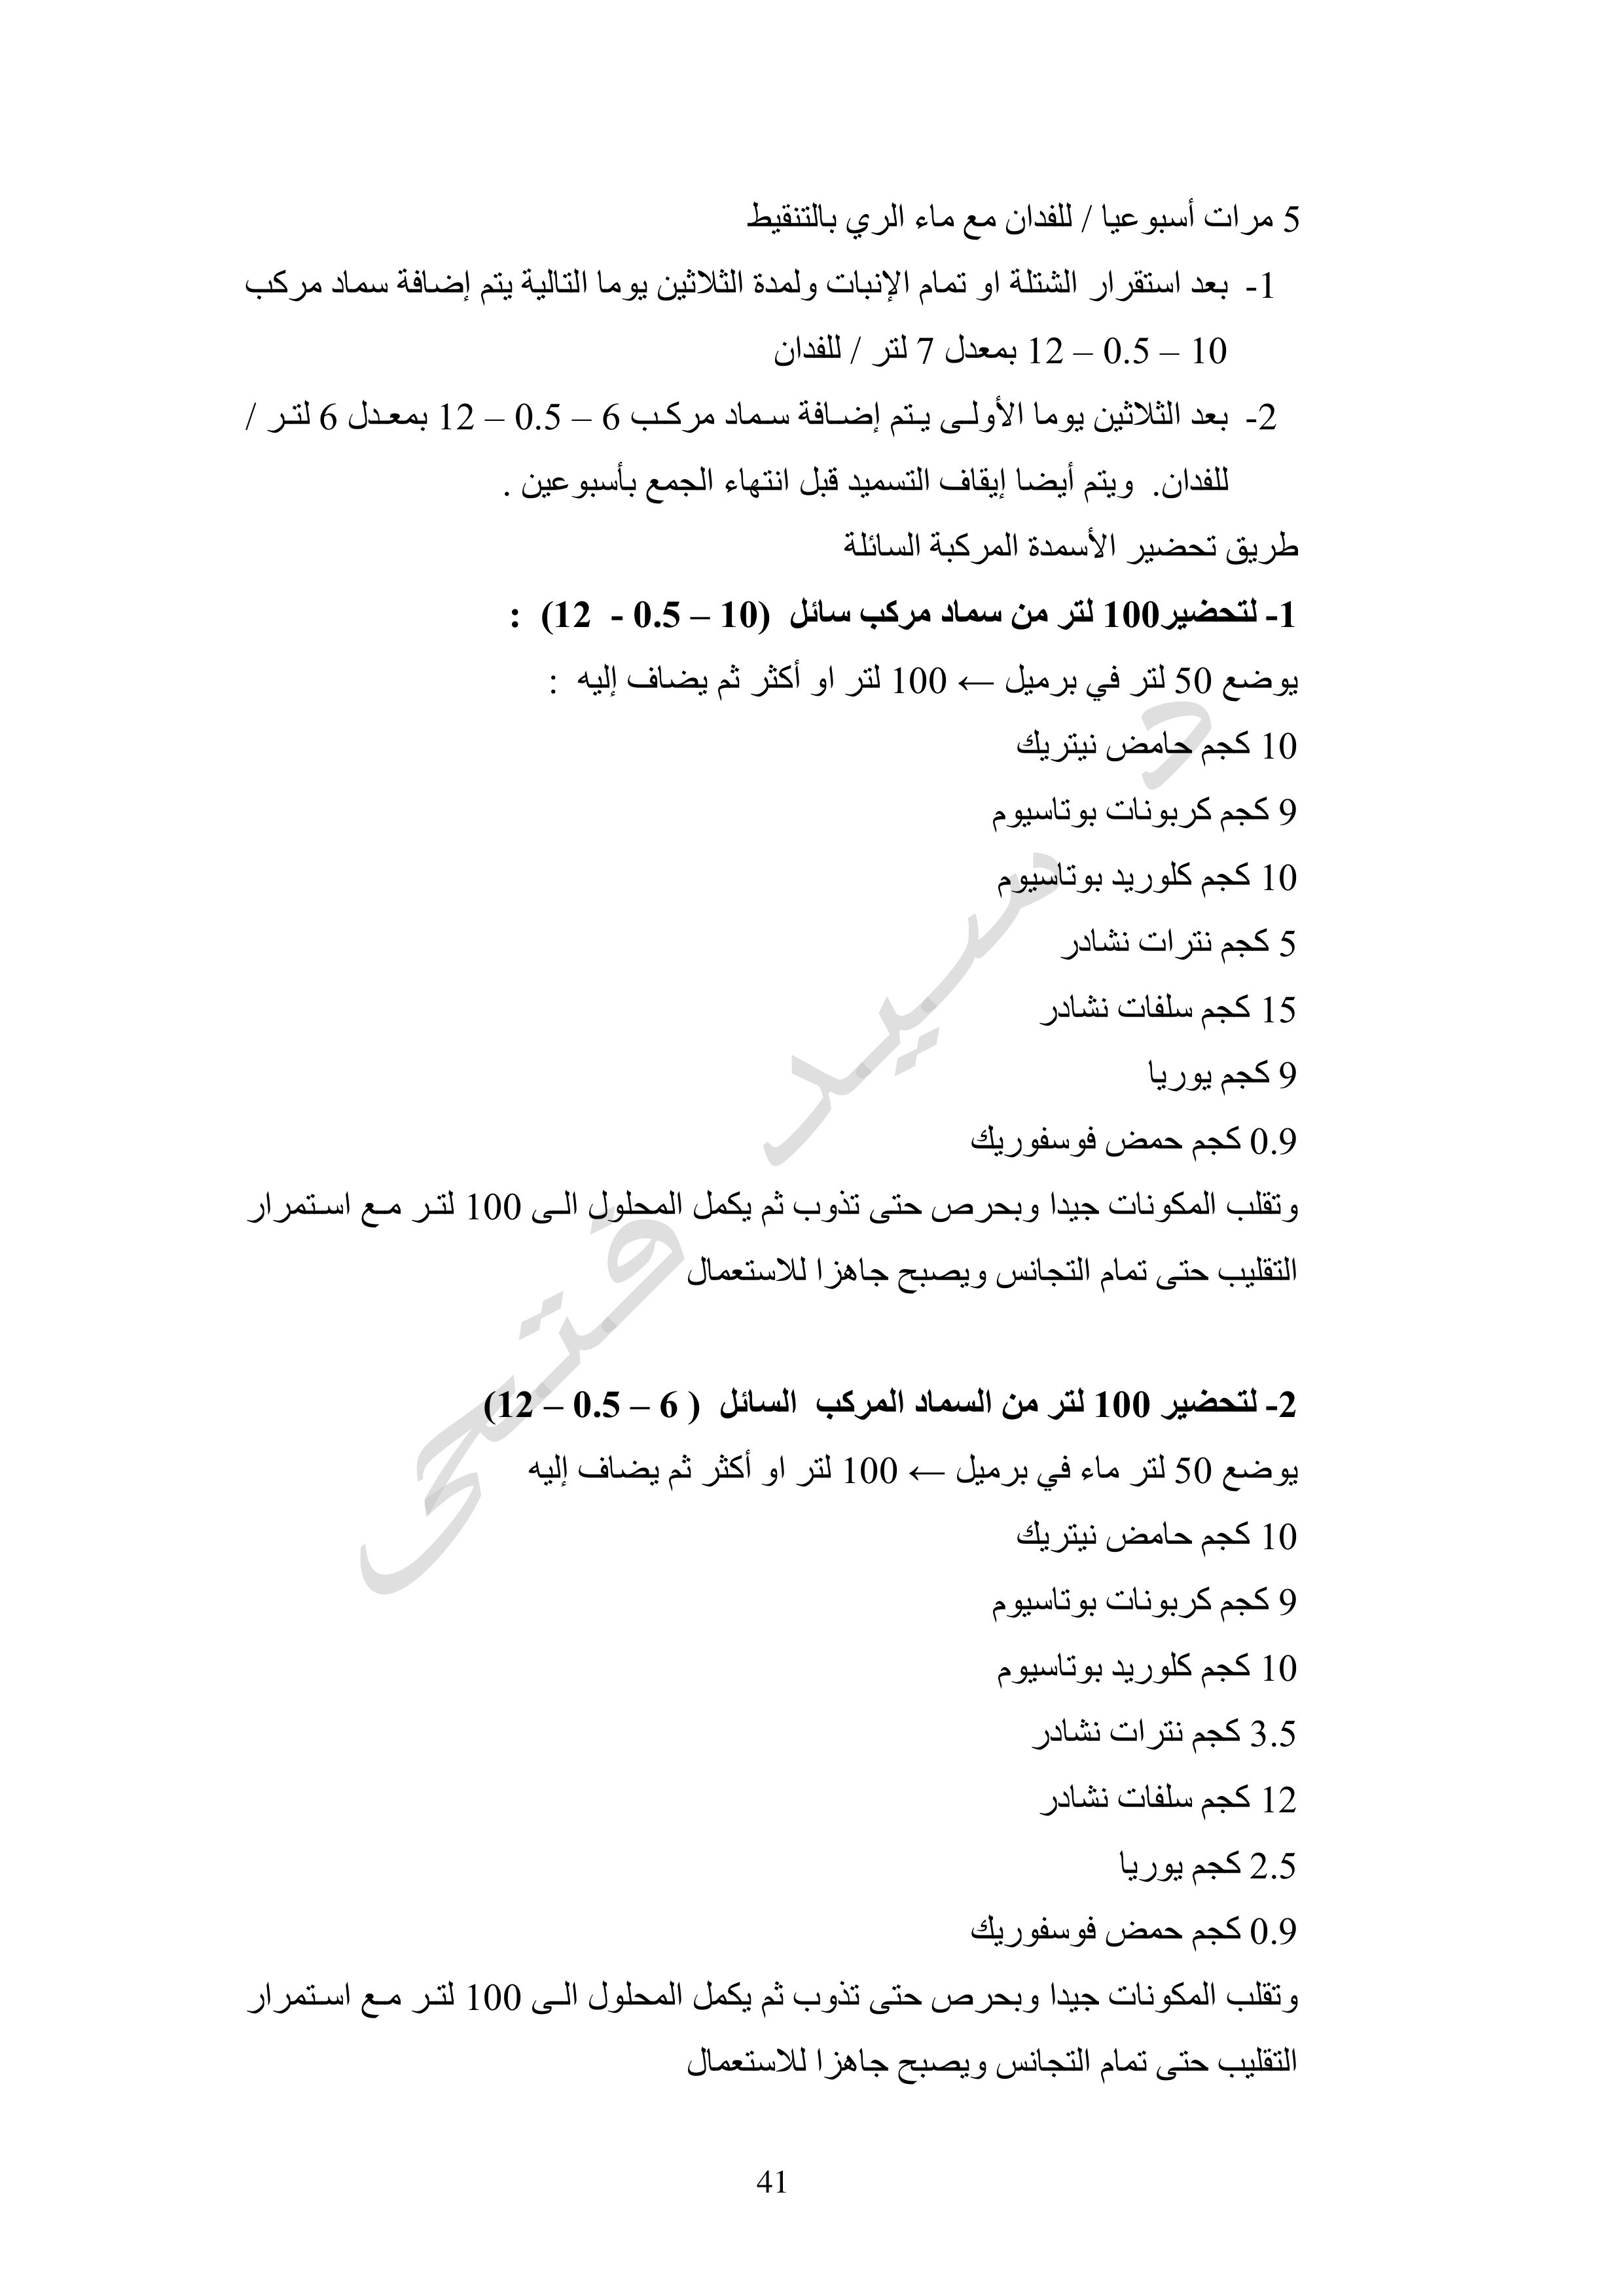 5 مرات أسبوعيا / للفدان مع ماء الري بالتنقيط
1- بعد استقرار الشتلة او تمام الإنبات ولمدة الثلاثين يوما التالية يتم إضافة سماد مركب
10 – 0.5 – 12 بمعدل 7 لتر / للفدان
2- بعد الثلاثين يوما الأولى يتم إضافة سماد مركب 6 – 0.5 – 12 بمعدل 6 لتر /
للفدان. ويتم أيضا إيقاف التسميد قبل انتهاء الجمع بأسبوعين .
طريق تحضير الأسمدة المركبة السائلة
1- لتحضير100 لتر من سماد مركب سائل (10 – 0.5 - 12) :
يوضع 50 لتر في برميل ← 100 لتر او أكثر ثم يضاف إليه :
10 كجم حامض نيتريك
9 كجم كربونات بوتاسيوم
10 كجم كلوريد بوتاسيوم
5 كجم نترات نشادر
15 كجم سلفات نشادر
9 كجم يوريا
0.9 كجم حمض فوسفوريك
وتقلب المكونات جيدا وبحرص حتى تذوب ثم يكمل المحلول الى 100 لتر مع استمرار
التقليب حتى تمام التجانس ويصبح جاهزا للاستعمال
2- لتحضير 100 لتر من السماد المركب السائل ( 6 – 0.5 – 12)
يوضع 50 لتر ماء في برميل ← 100 لتر او أكثر ثم يضاف إليه
10 كجم حامض نيتريك
9 كجم كربونات بوتاسيوم
10 كجم كلوريد بوتاسيوم
3.5 كجم نترات نشادر
12 كجم سلفات نشادر
2.5 كجم يوريا
0.9 كجم حمض فوسفوريك
وتقلب المكونات جيدا وبحرص حتى تذوب ثم يكمل المحلول الى 100 لتر مع استمرار
التقليب حتى تمام التجانس ويصبح جاهزا للاستعمال
41
د سيد فتحى